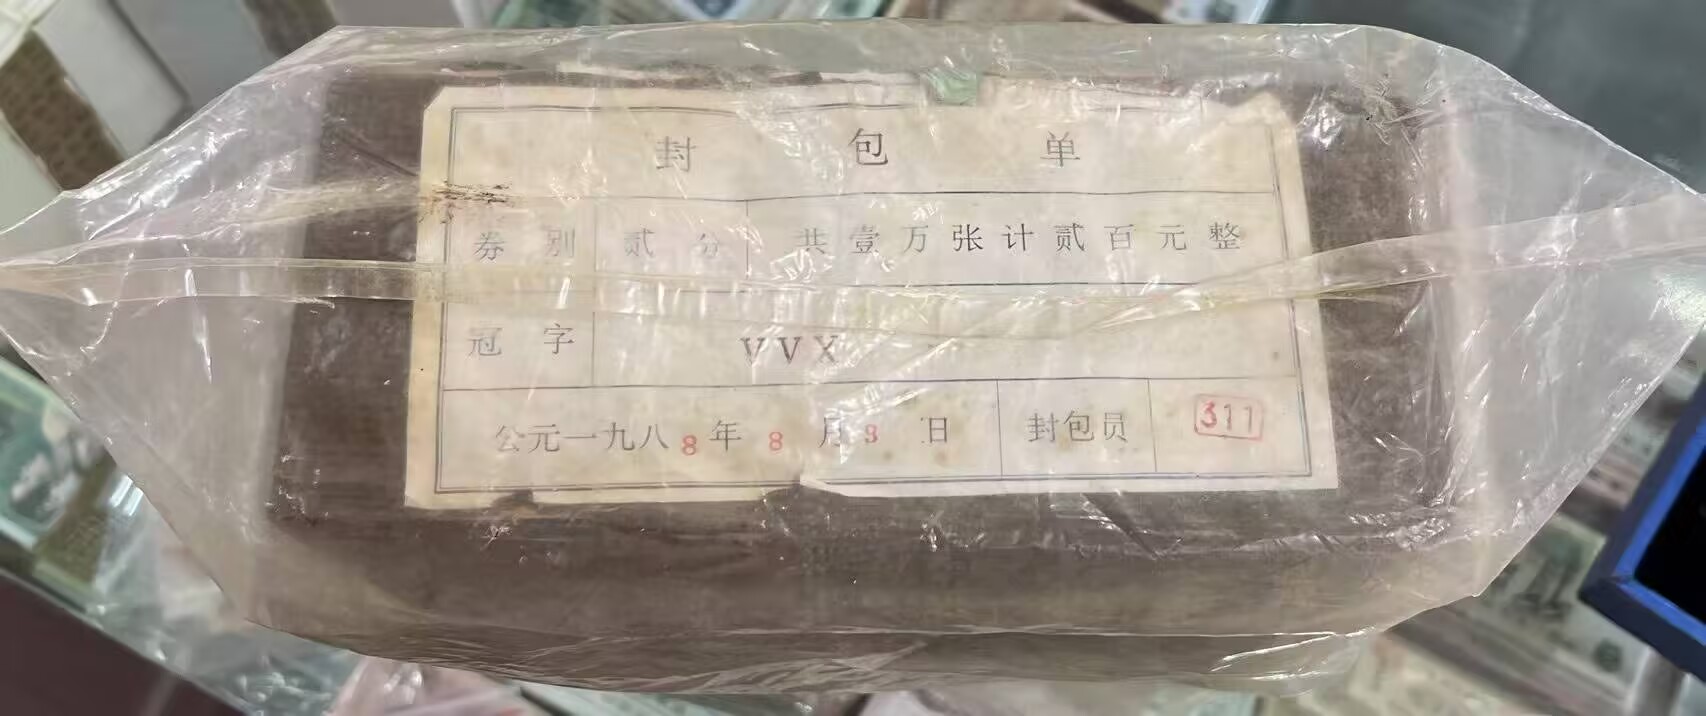 封包单
券别 贰分 共壹万张计贰百元整
冠字 VVX
公元一九八8年8月8日 封包员 311